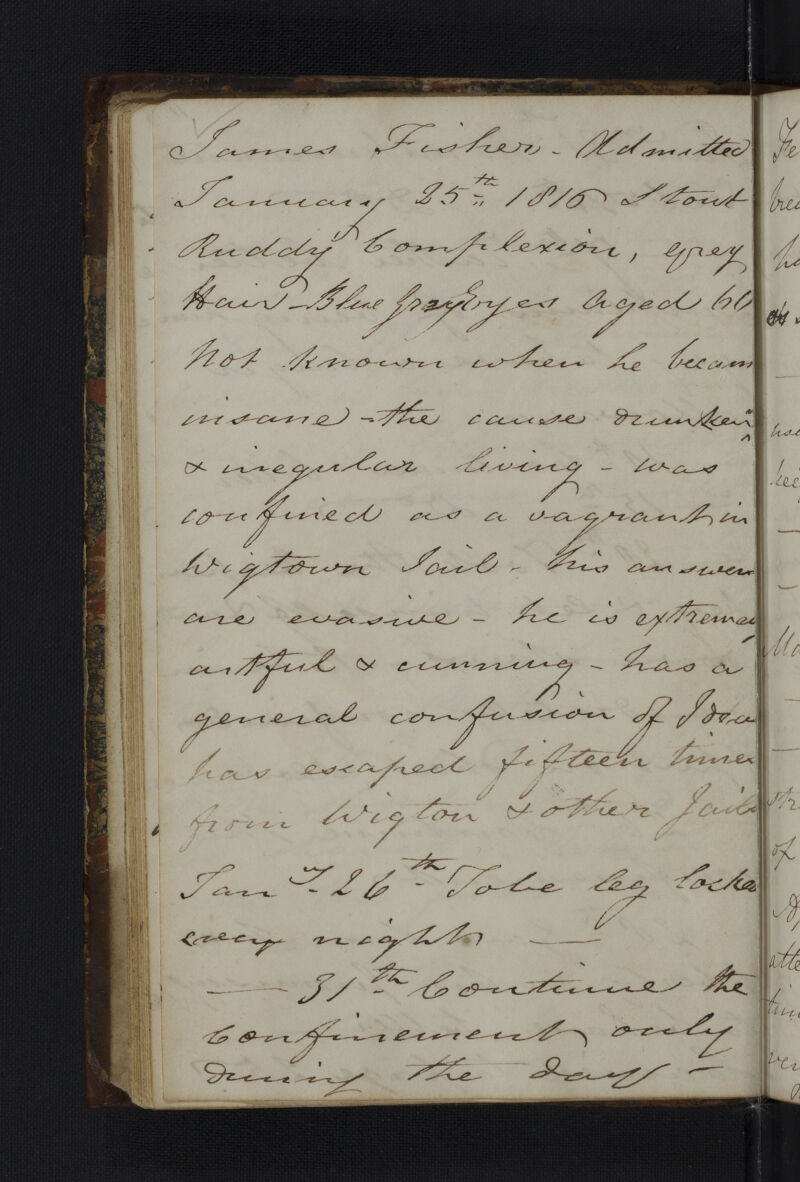 James Fisher - Admitted
January 25th 1816 Stout
Ruddy Complexion, grey
Hair - Blue Gray Eyes Aged 66
Not known when he becam
insane - the cause drunken
& irregular living - was
confined as a vagrant in
Wigtown Jail - his answers
are evasive - he is extremely
artful & cunning - has a
general confusion of Idea
has escaped fifteen times
from Wigton & other Jails
Jany - 26th - To be leg locked
every night —
— 31th Continue the
Confinement only
during the day -